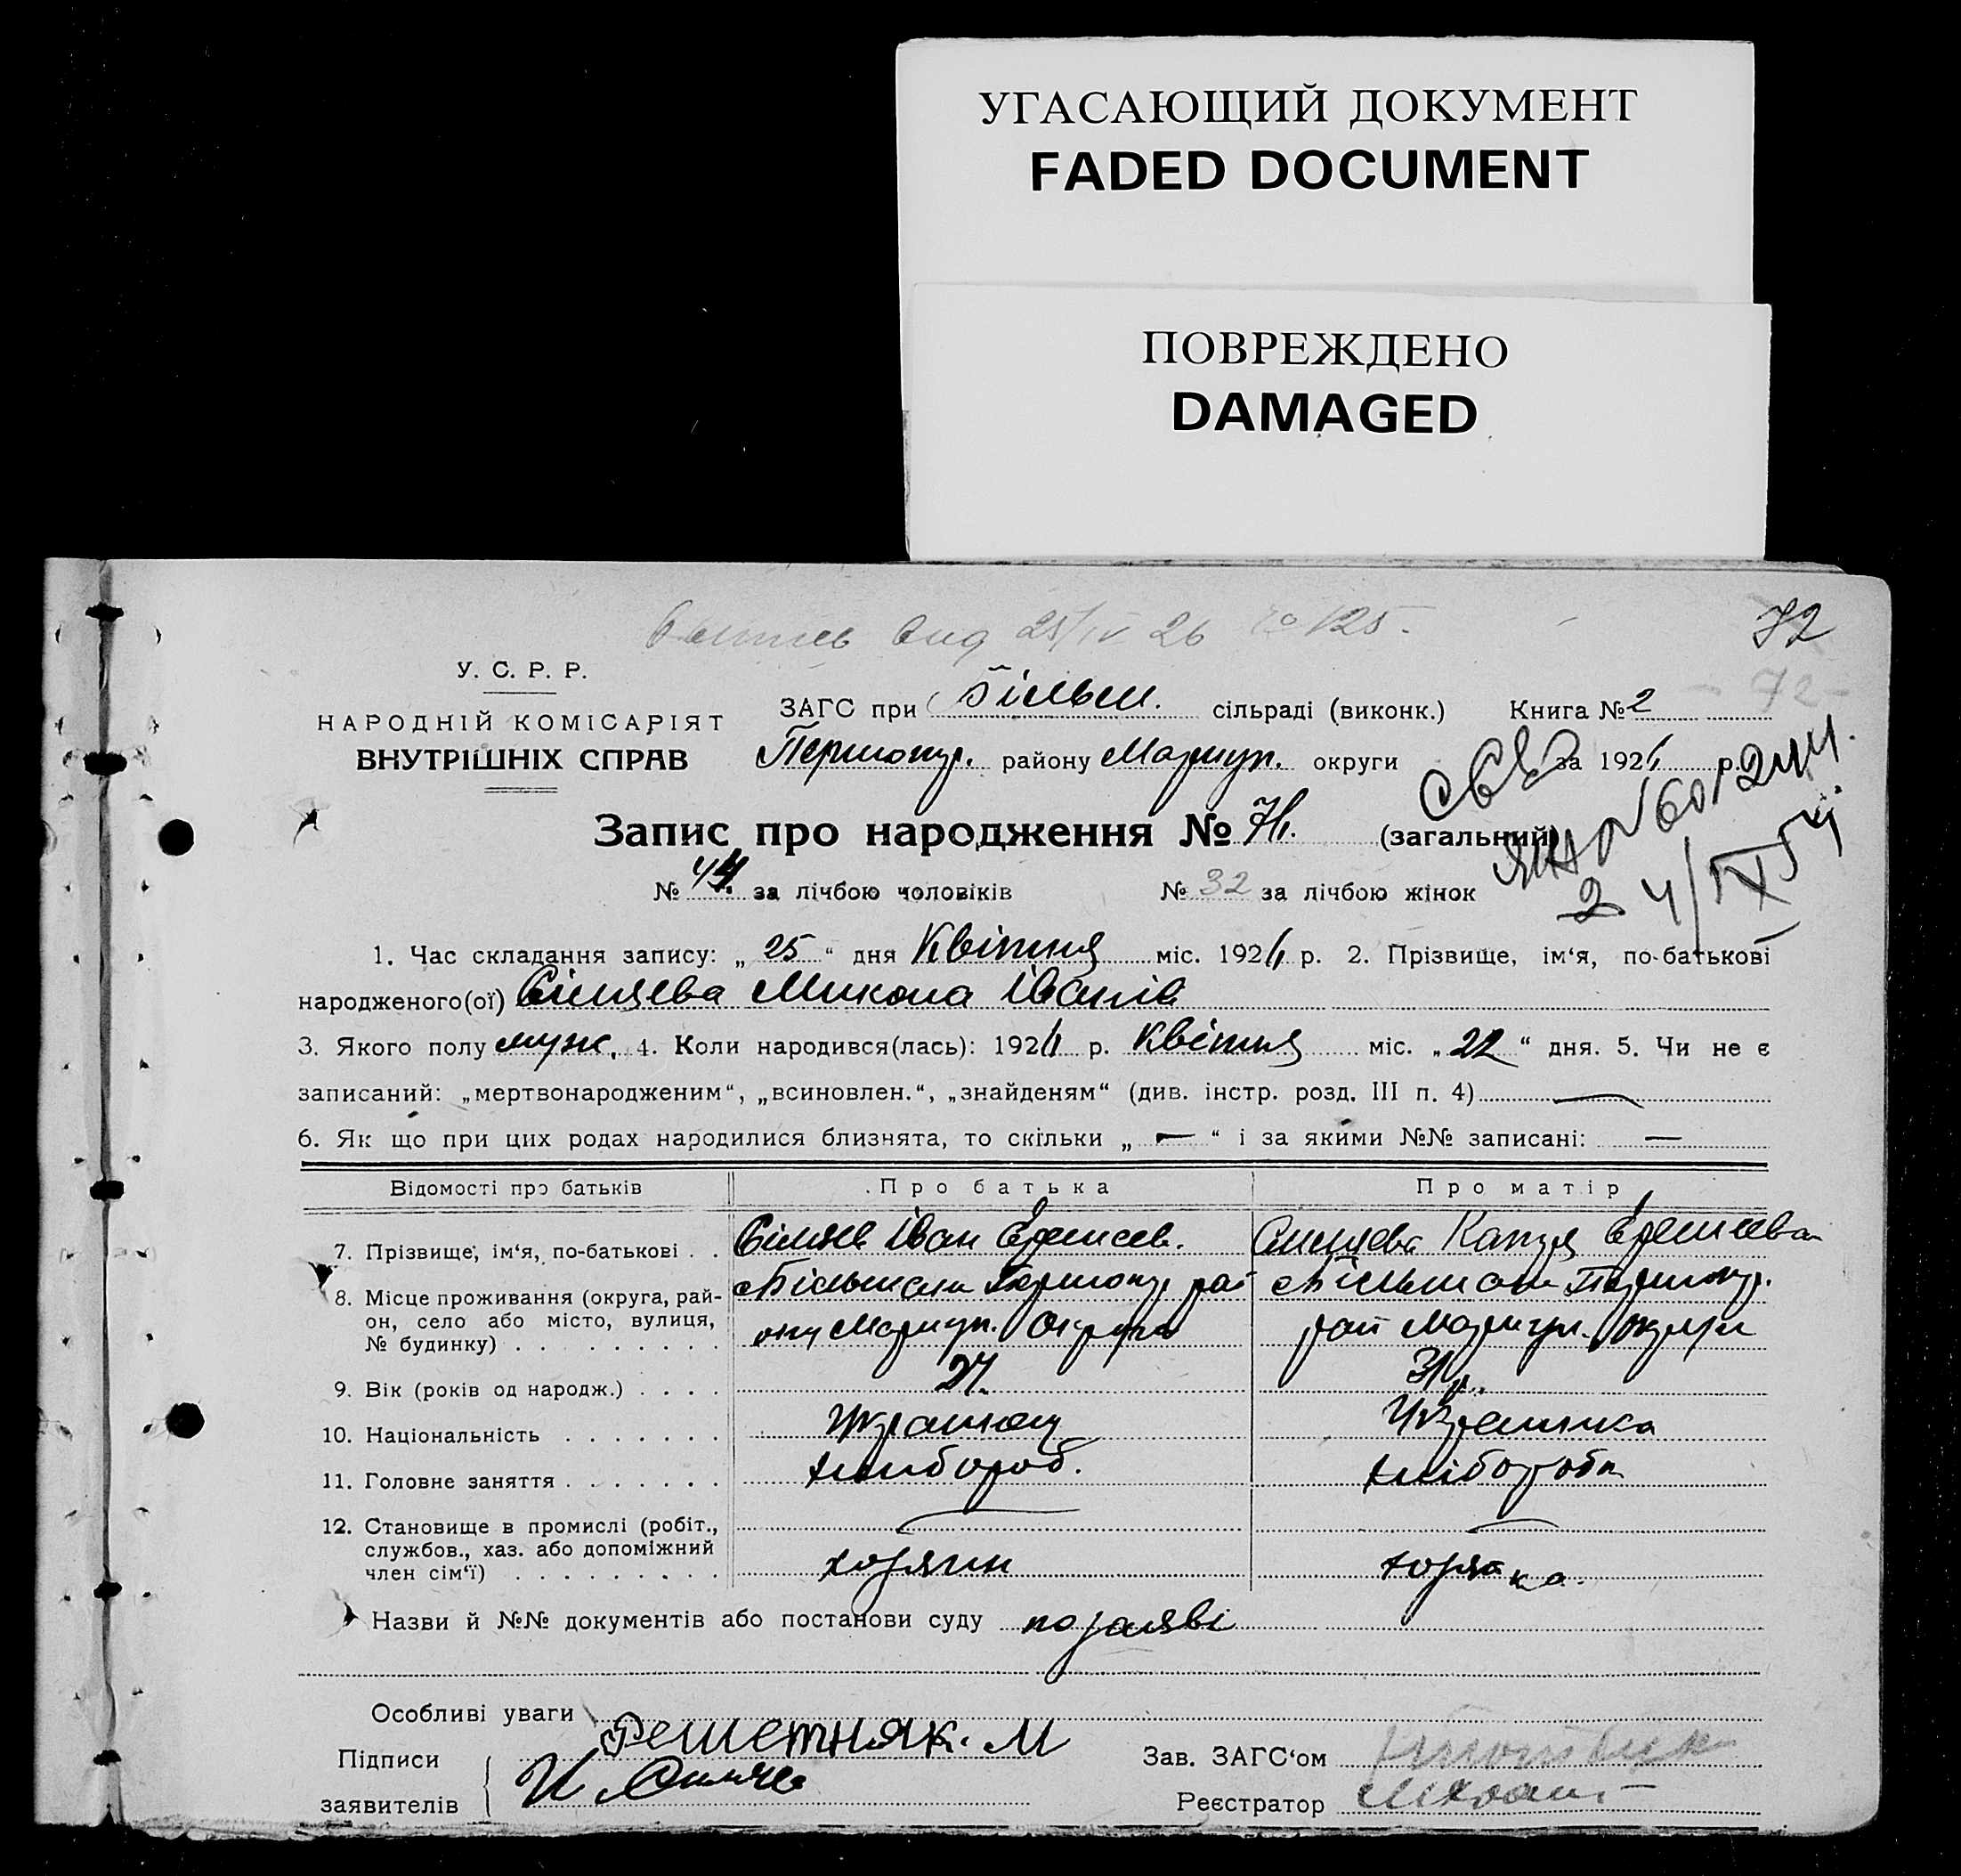 УГАСАЮЩИЙ ДОКУМЕНТ
FADED DOCUMENT
ПОВРЕЖДЕНО
DAMAGED
вид 25/IV 26 № 125.
72
72
У. С. Р. Р.
НАРОДНІЙ КОМІСАРІЯТ
ВНУТРІШНІХ СПРАВ
ЗАГС при Більш. сільраді (виконк.) Книга № 2
Першопур. району Маріуп. округи за 1926 р.
Запис про народження № 71. (загальний)
№ 44 за лічбою чоловіків № 32 за лічбою жінок
1. Час складання запису: „ 25 “ дня Квітня міс. 1926 р. 2. Прізвище, ім‘я, по-батькові
народженого(ої) Сіняєва Микола Іванів
3. Якого полу муж. 4. Коли народився(лась): 1926 р. Квітня міс. „ 22 “ дня. 5. Чи не є
записаний: „мертвонародженим“, „всиновлен.“, „знайденям“ (див. інстр. розд. III п. 4) —
6. Як що при цих родах народилися близнята, то скільки „ — “ і за якими №№ записані: —
Відомості про батьків Про батька Про матір
7. Прізвище, ім‘я, по-батькові . . Іван
8. Місце проживання (округа, рай-
он, село або місто, вулиця,
№ будинку) . . . . . . . . . Маріуп. Округи рай Маріуп. округи
9. Вік (років од народж.) . . . . 27. 31
10. Національність . . . . . . . Українец Українка
11. Головне заняття . . . . . . . хлибороб. хліборобка
12. Становище в промислі (робіт., — —
службов., хаз. або допоміжний
член сім‘ї) . . . . . . . . . хозяин хозяйка.
Назви й №№ документів або постанови суду по заяві
Особливі уваги
Підписи Решетняк. М Зав. ЗАГС‘ом
заявителів И Реєстратор